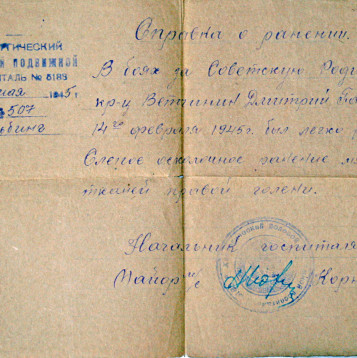 ГИЧЕСКИЙ
Й ПОДВИЖНОЙ
ТАЛЬ № 5188
мая 1945 г
507
Справка о ранении.
В боях за Советскую Роди
кр-ц Ветчинин Дмитрий
14го февраля 1945г. был легко
Слепое осколочное ранение мя
тканей правой голени.
Начальник госпиталя
Майор м/с Кор